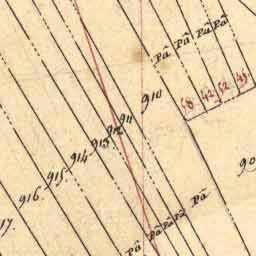 Pâ Pâ Pâ Pâ
910
911
912
913
914
915
916
917.
58 42 52 45
90
Pâ
Pâ Pâ Pâ Pâ